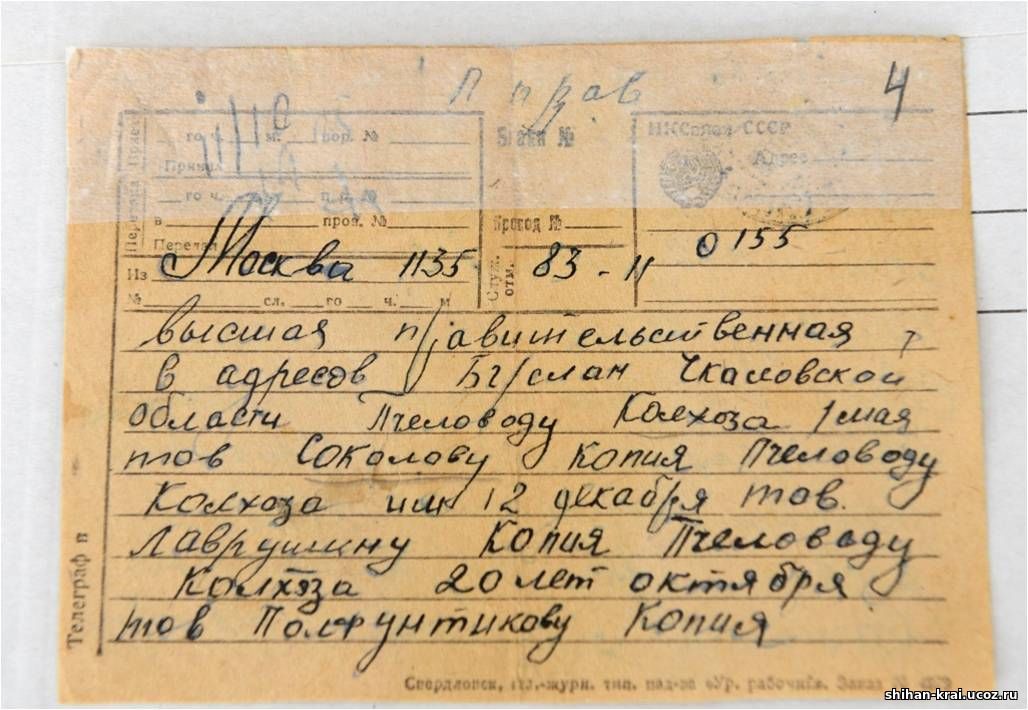 4
го ч. м. пор. №
Бланк №
НКСвязи СССР
Адрес
Принял
го ч.
в пров. №
Провод №
Передал
0155
Из Москва 1135
Служ. отм.
83 - 11
№ сл. го ч. м
высшая правительственная
в адресов Бгуслан Чкаловской
области Пчеловоду Колхоза 1 мая
тов Соколову Копия Пчеловоду
Колхоза им 12 декабря тов.
Лаврушину Копия Пчеловоду
Колхоза 20 лет октября
тов Полфунтикову Копия
Телеграф
Свердловск, тип. изд-ва «Ур. рабочий». Заказ №
shihan-krai.ucoz.ru